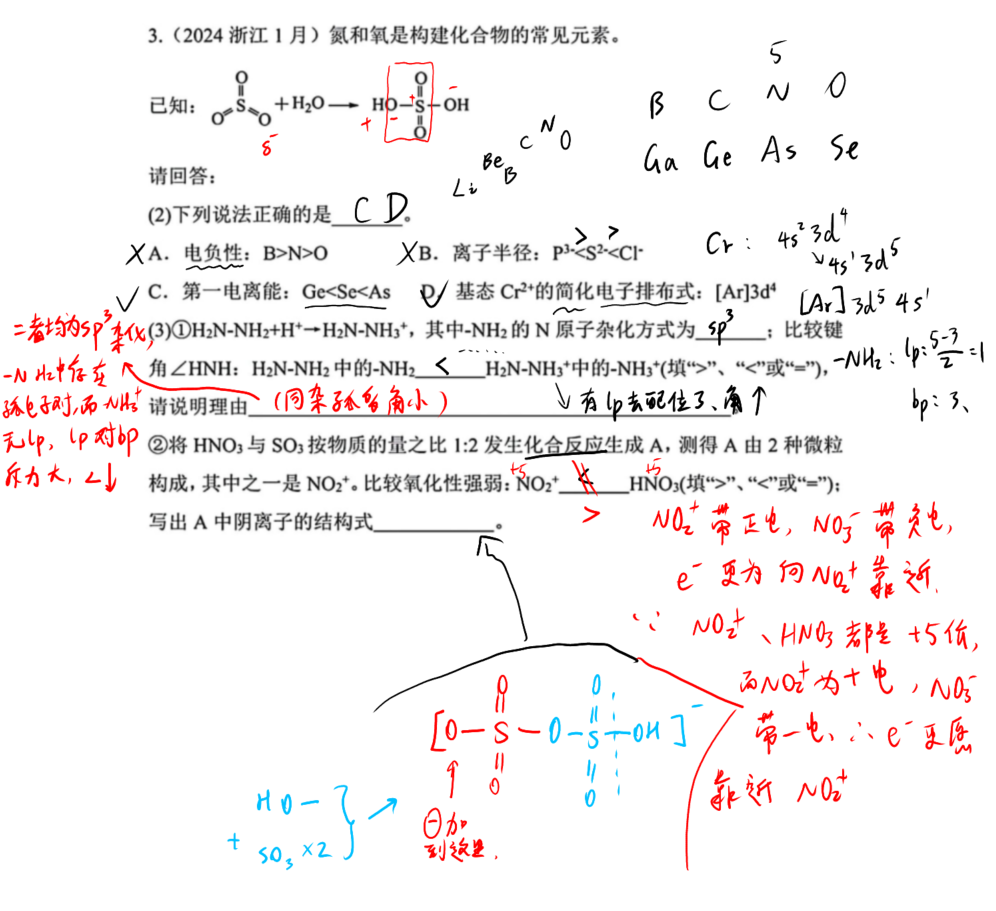 3.（2024 浙江 1 月）氮和氧是构建化合物的常见元素。
5
B C N O
Ga Ge As Se
已知：
O
S
O O
+H₂O
HO S OH
O
O
+ - + -
δ⁻
Li Be B C N O
请回答：
(2)下列说法正确的是 C D 。
Cr： 4s² 3d⁴
↘4s¹ 3d⁵
X A．电负性：B>N>O
X B．离子半径：P³⁻<S²⁻<Cl⁻
> >
✓ C．第一电离能：Ge<Se<As
✓ D．基态 Cr²⁺的简化电子排布式：[Ar]3d⁴
[Ar]3d⁵ 4s¹
(3)①H₂N-NH₂+H⁺→H₂N-NH₃⁺，其中-NH₂ 的 N 原子杂化方式为 sp³ ；比较键
角∠HNH：H₂N-NH₂ 中的-NH₂ < H₂N-NH₃⁺中的-NH₃⁺(填“>”、“<”或“=”)，
请说明理由 (同杂孤多角小)
-NH₂：lp：5-3/2=1
bp：3、
↓ 有lp去配位了、角↑
二者均为sp³
杂化，
-NH₂中存在
孤电子对，而-NH₃⁺
无lp，lp对bp
斥力大，∠↓
②将 HNO₃ 与 SO₃ 按物质的量之比 1:2 发生化合反应生成 A，测得 A 由 2 种微粒
构成，其中之一是 NO₂⁺。比较氧化性强弱：NO₂⁺ < HNO₃(填“>”、“<”或“=”)；
+5 +5
>
写出 A 中阴离子的结构式 。
NO₂⁺带正电，NO₃⁻带负电，
e⁻更为向NO₂⁺靠近.
∵ NO₂⁺、HNO₃都是+5价，
而NO₂⁺为+电，NO₃⁻
带-电、∴e⁻更愿
靠近 NO₂⁺
O O
[O-S-O-S-OH]⁻
O O
HO-
+ SO₃×2
⊖加
到这里.